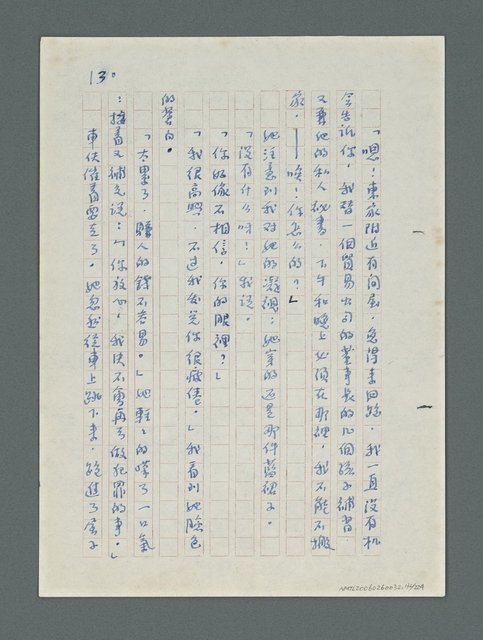 「嗯!東家附近有间屋,免得來回跑,我一直沒有机
会告訴你,我替一個貿易公司的董事長的几個孩子補習,
又兼他的私人秘書,下午和晚上必須在那裡,我不能不搬
家,——唉!你怎么的?」
她注意到我对她的凝視;她穿的还是那件藍裙子。
「沒有什么呀!」我说。
「你好像不相信,你的眼裡?」
「我很高興,不过我发觉你很疲倦。」我看到她臉色
的蒼白。
「太累了,賺人的錢不容易。」她輕輕的嘆了一口氣
;接着又補充说:「你放心,我決不會再去做犯罪的事。」
車伕催着要走了,她忽然從車上跳下來,跑進了屋子
130
NMTL20060260032.141/224